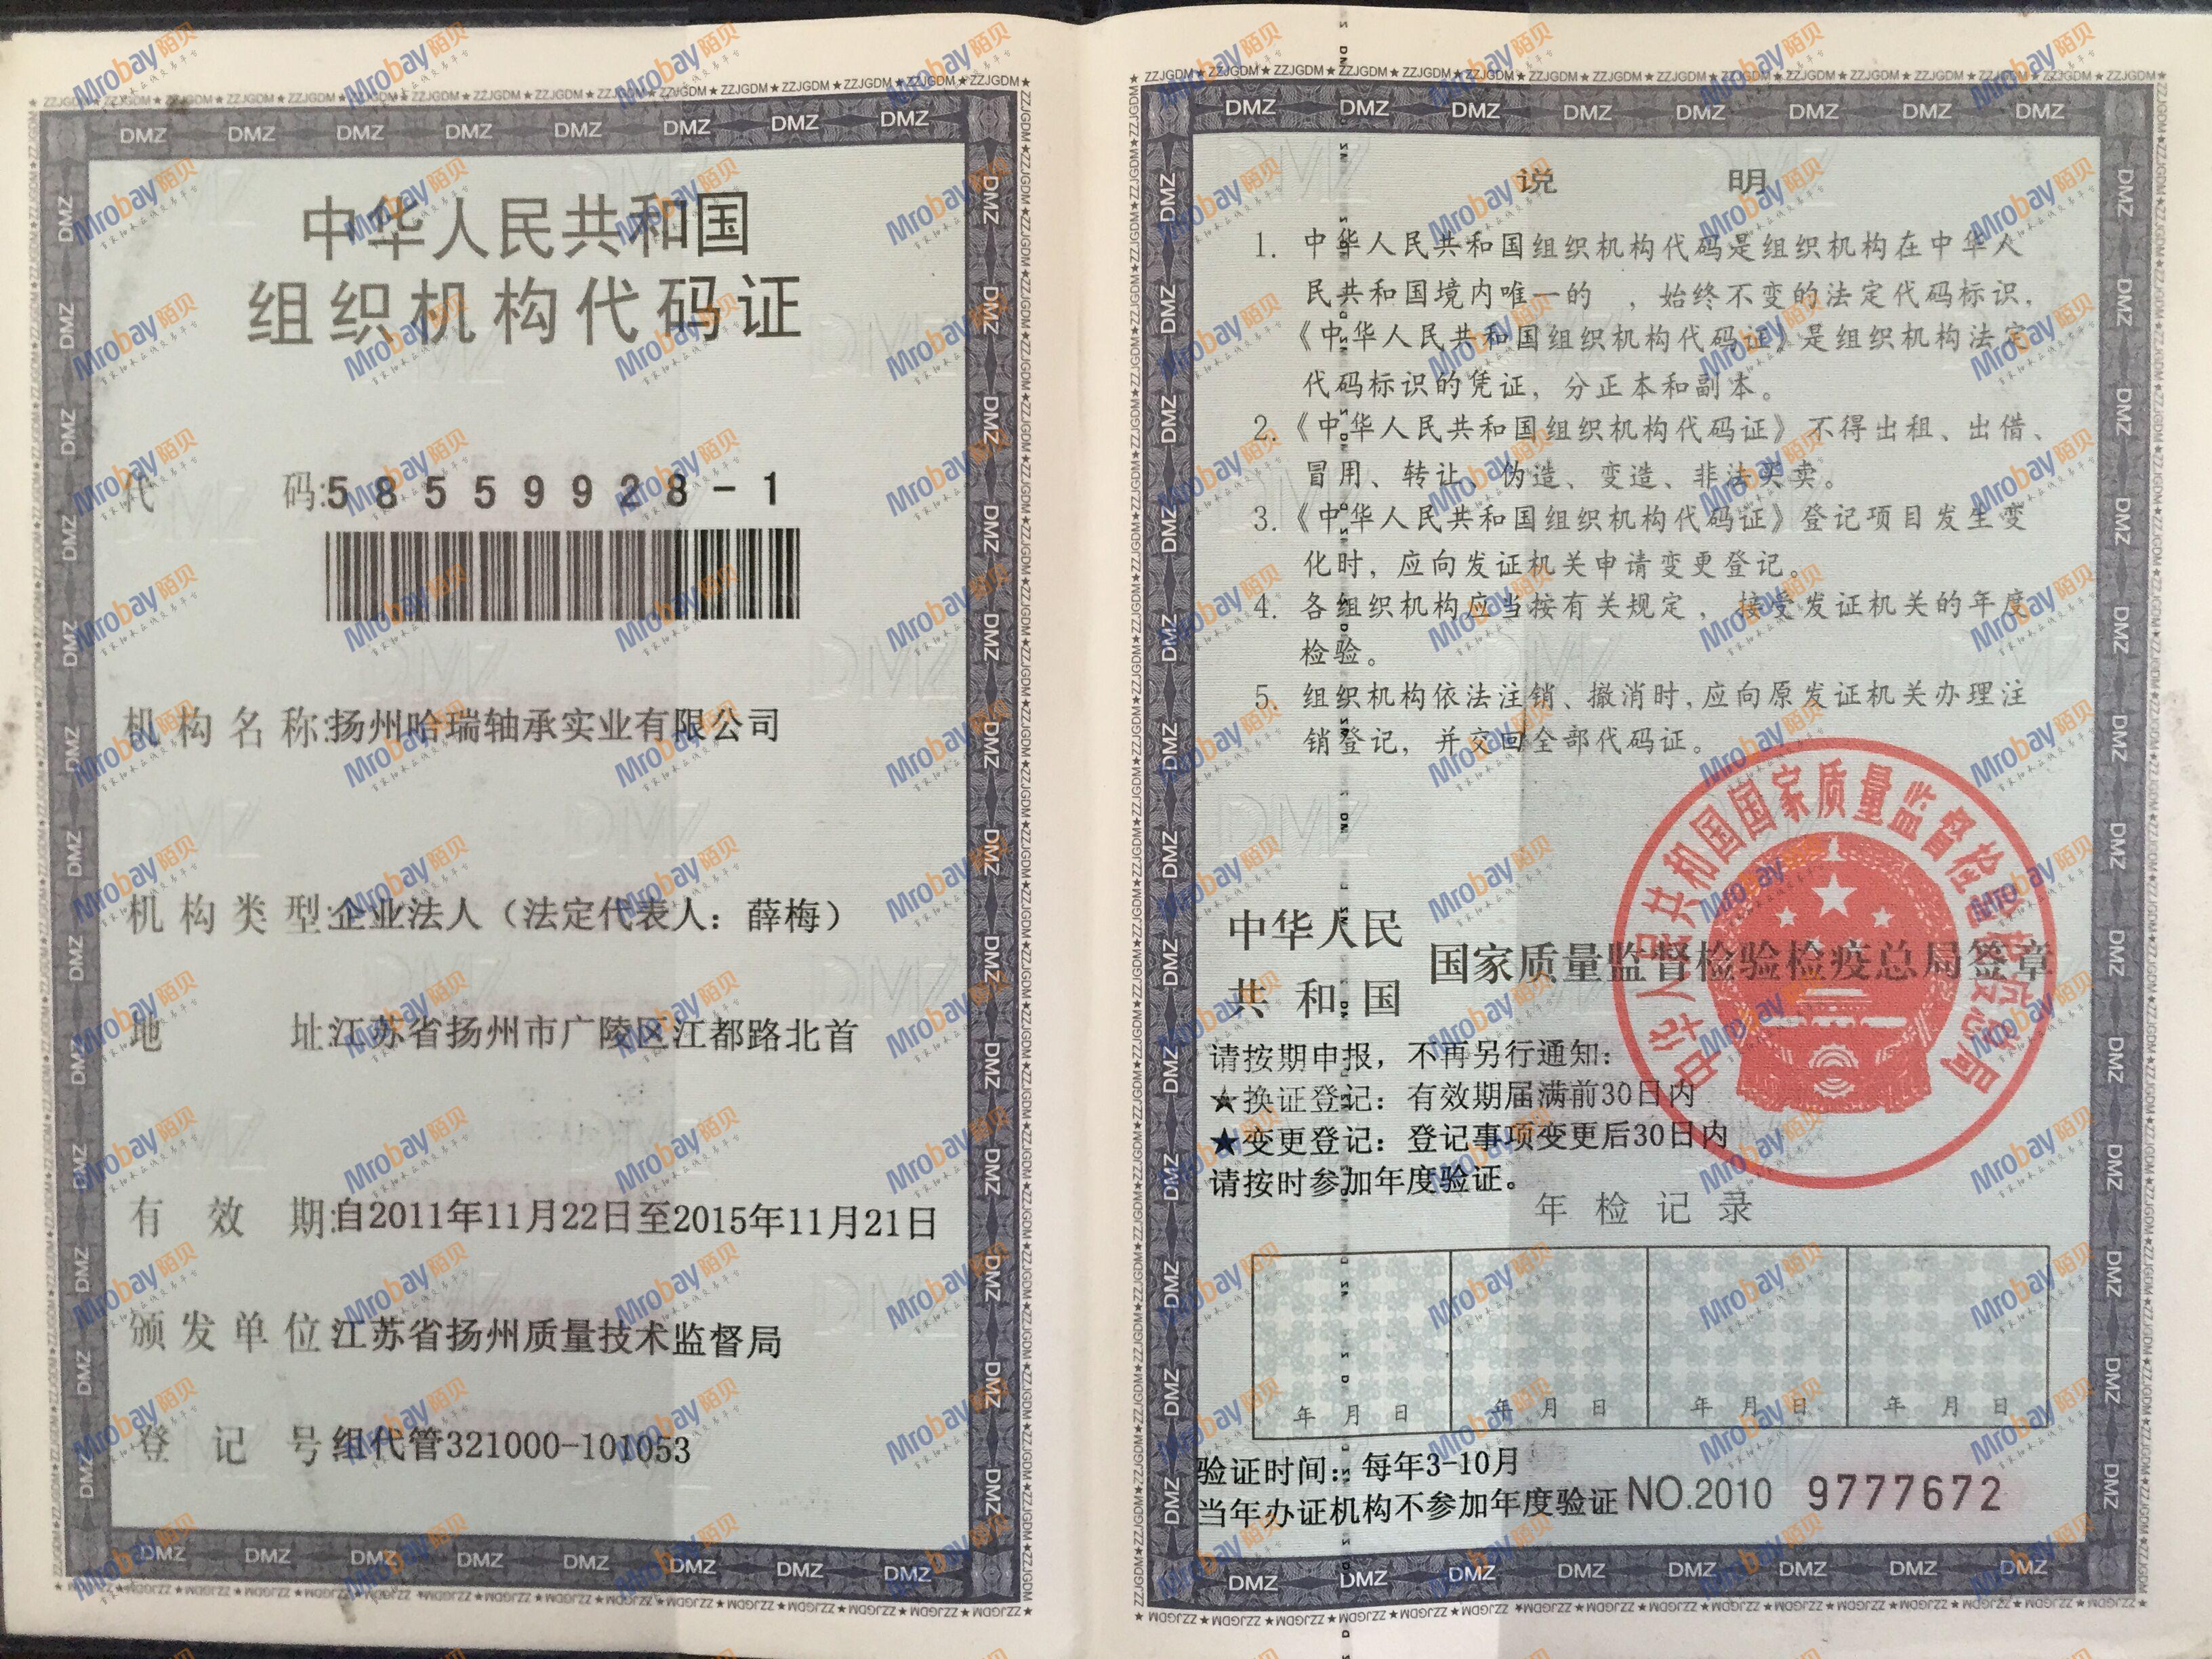 中华人民共和国
组织机构代码证
代 码:58559928-1
机构名称:扬州哈瑞轴承实业有限公司
机构类型:企业法人（法定代表人：薛梅）
地 址:江苏省扬州市广陵区江都路北首
有 效 期:自2011年11月22日至2015年11月21日
颁发单位 江苏省扬州质量技术监督局
登 记 号 组代管321000-101053
说 明
1. 中华人民共和国组织机构代码是组织机构在中华人
民共和国境内唯一的 ，始终不变的法定代码标识，
《中华人民共和国组织机构代码证》是组织机构法定
代码标识的凭证，分正本和副本。
2.《中华人民共和国组织机构代码证》不得出租、出借、
冒用、转让、伪造、变造、非法买卖。
3.《中华人民共和国组织机构代码证》登记项目发生变
化时，应向发证机关申请变更登记。
4. 各组织机构应当按有关规定，接受发证机关的年度
检验。
5. 组织机构依法注销、撤消时,应向原发证机关办理注
销登记，并交回全部代码证。
中华人民共和国国家质量监督检验检疫总局
中华人民
共和国
国家质量监督检验检疫总局签章
请按期申报，不再另行通知：
★换证登记：有效期届满前30日内
★变更登记：登记事项变更后30日内
请按时参加年度验证。
年检记录
年 月 日 年 月 日 年 月 日 年 月 日
验证时间：每年3-10月
当年办证机构不参加年度验证
NO.2010 9777672
Mrobay陌贝
DMZ
ZZJGDM